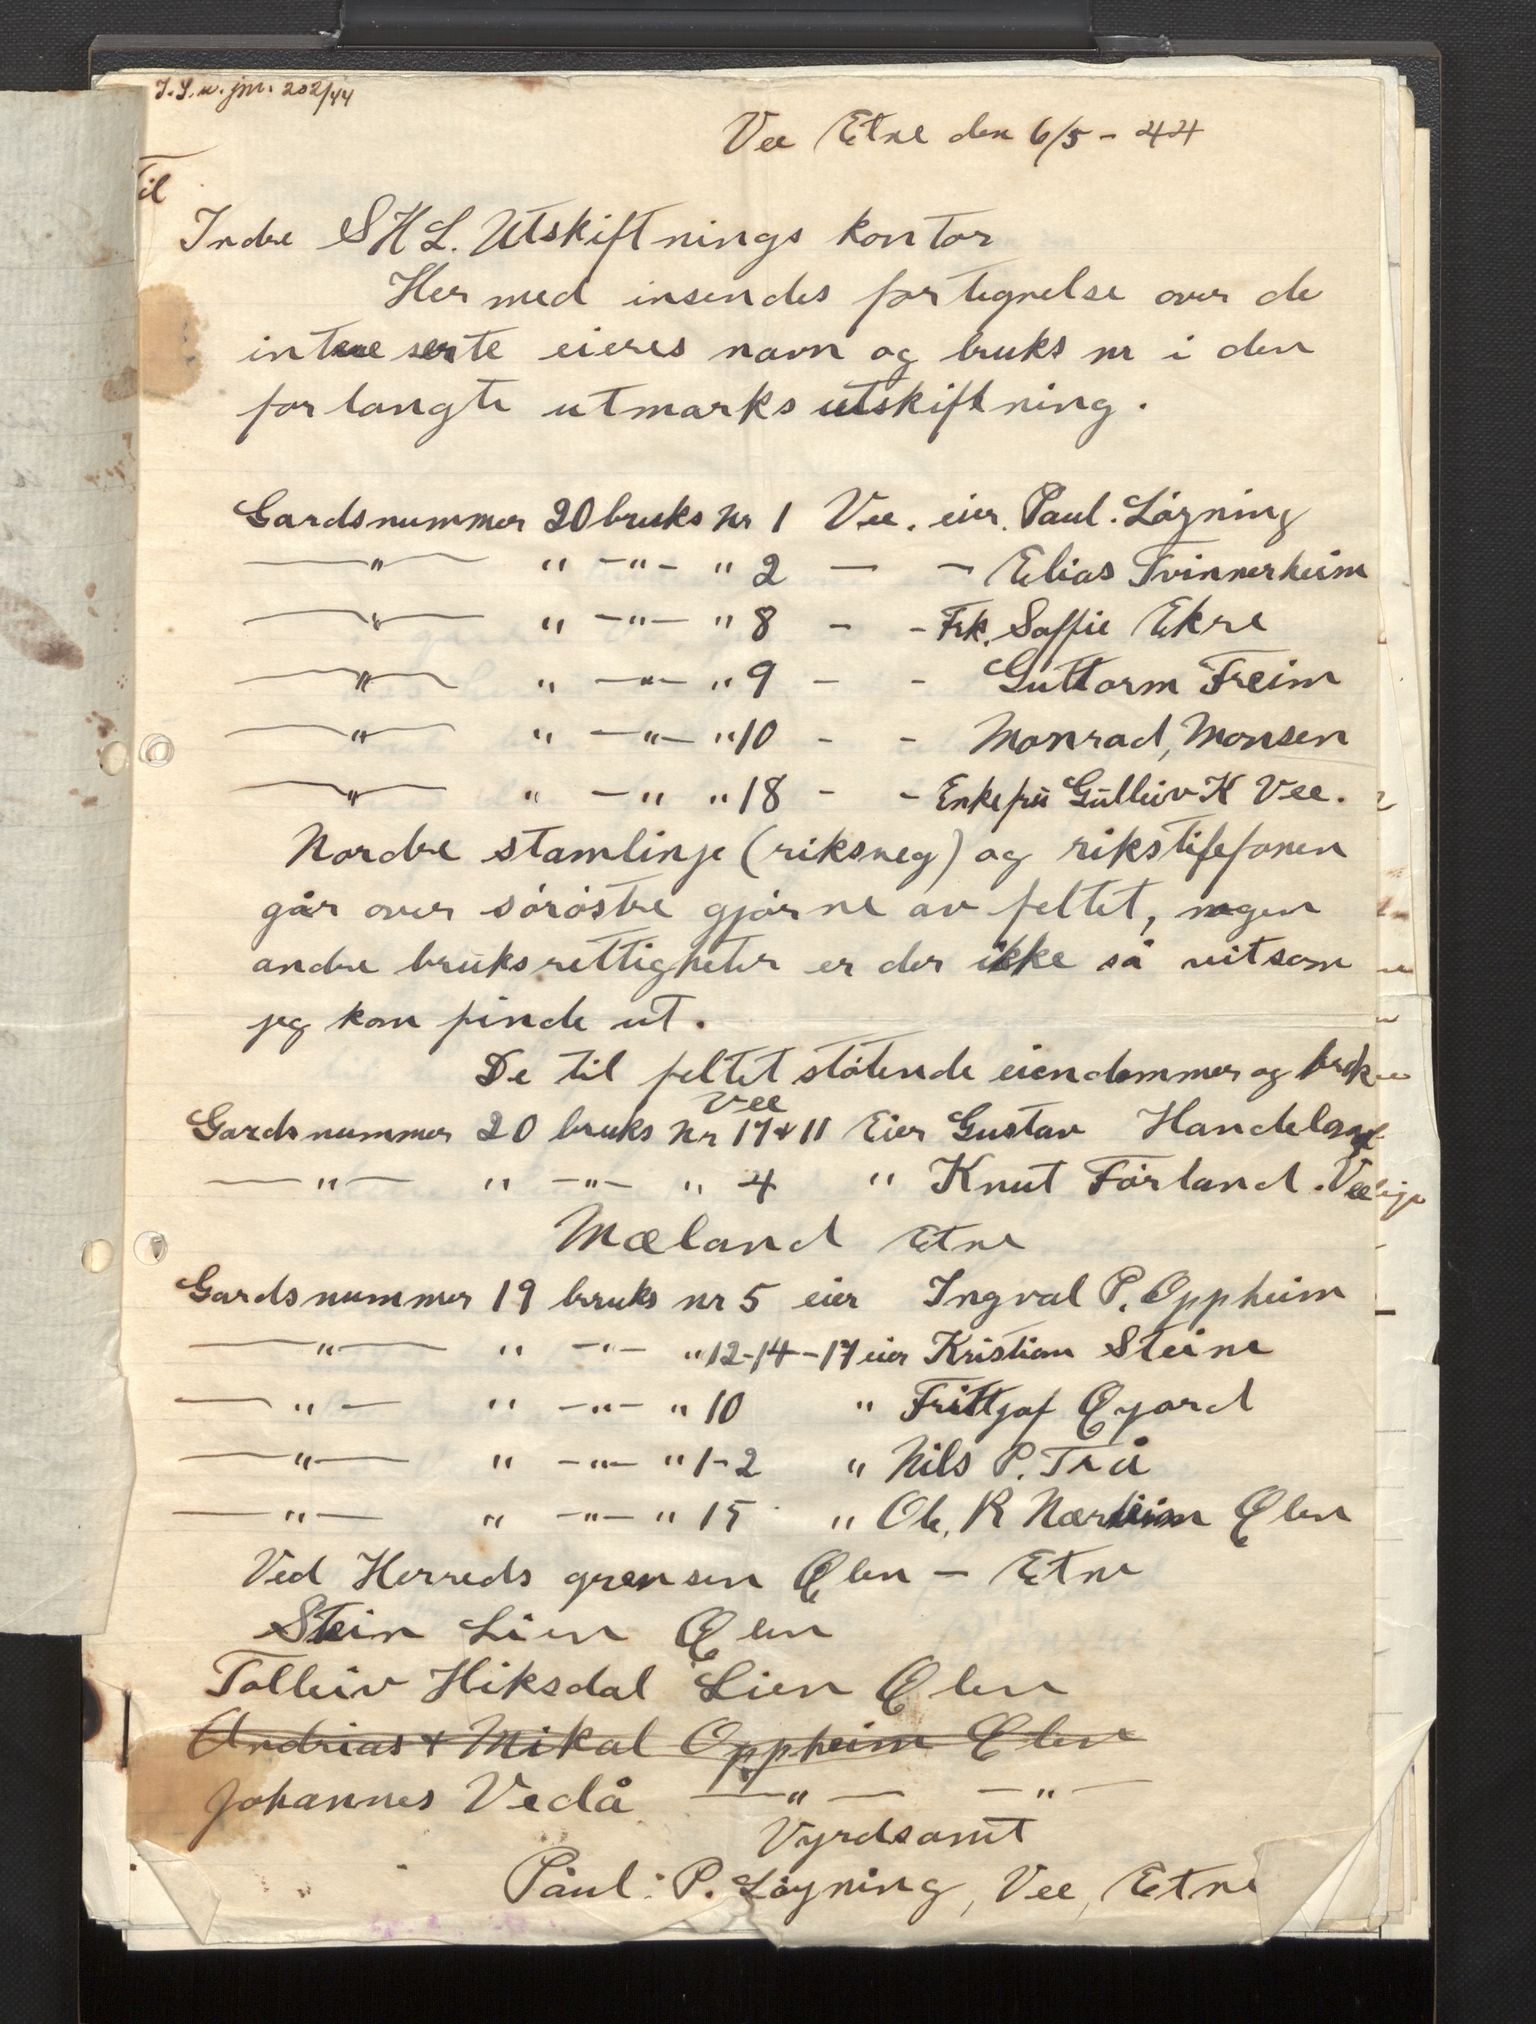 I.S.u. jnr. 202/44
Vee Etne den 6/5 - 44
Til
Indre SHL. Utskiftnings kontor
Her med insendes fortegnelse over de
intereserte eieres navn og bruks nr i den
forlangte utmarks utskiftning.
Gardsnummer 20 bruks Nr 1 Vee. eier. Paul. Löyning
—"— " —"— " 2 — — Elias Tvinnerheim
—"— " —"— " 8 - - Frk. Soffie Ekre
—"— " —"— " 9 - - Guttorm Freim
—"— " —"— " 10 - - Monrad, Monsen
—"— " —" " 18 - - Enkefru Gulleiv K Vee.
Nordre stamlinje (riksveg) og rikstilefonen
går over söröstre gjörne av feltet, nogen
andre bruksrettigheter er der ikke så vitsom
jeg kan finde ut.
De til feltet stötende eiendommer og bruk
Vee
Gardsnummer 20 bruks Nr 17+11 Eier Gustav Handeland
—"— " —"— " 4 " Knut Förland. Vee
Mæland Etne
Gardsnummer 19 bruks nr 5 eier Ingval P. Oppheim
—"— " —"— " 12-14-17 eier Kristian Steine
—"— " —"— " 10 " Frittjof Qyard
—"— " —"— " 1-2 " Nils P. Trå
—"— " —"— " 15 " Ole. R Nærheim Ølen
Ved Herreds grensen Ølen — Etne
Stein Lien Ølen
Tolleiv Hiksdal Lien Ølen
Andrias + Mikal Oppheim Ølen
Johannes Vedå —"— —"—
Vyrdsamt
Pául. P. Löyning, Vee, Etne